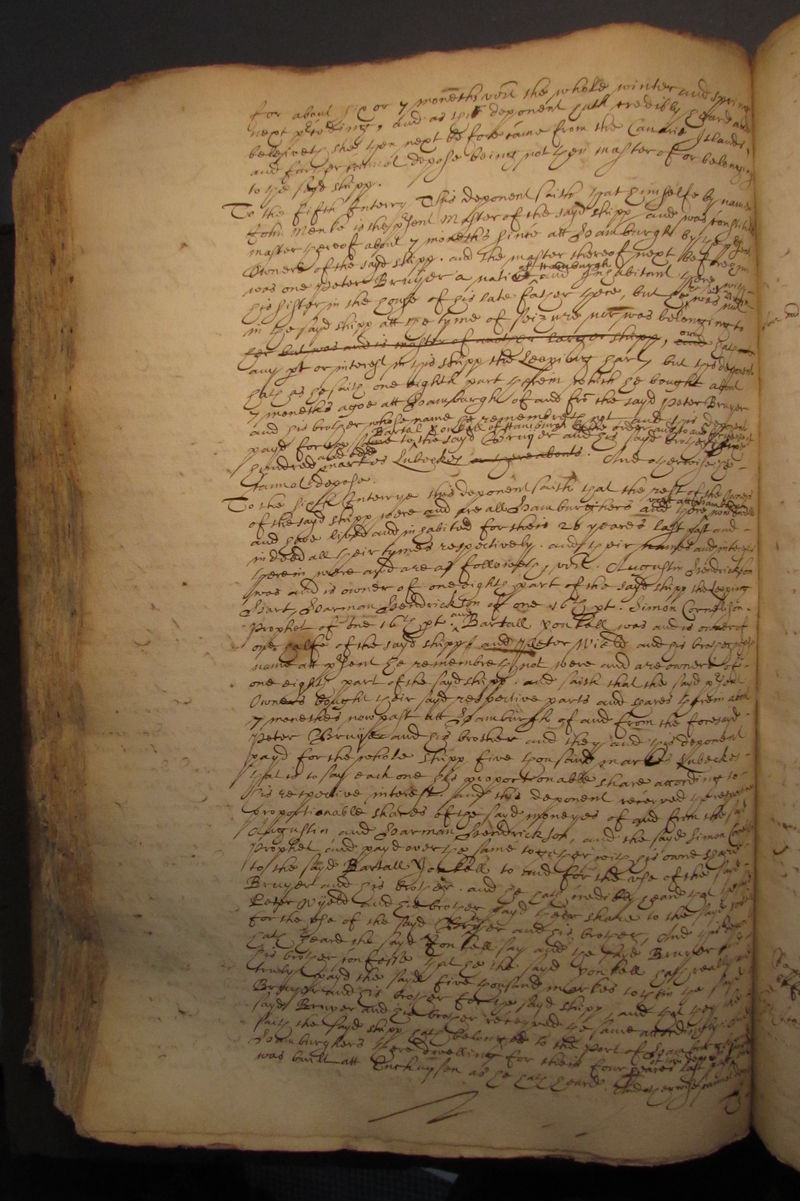 for about six or 7 moneths vizt the whole winter and spring
next following, and as this deponent hath credibly heard and
beleiveth she then next before came from the Canarie Islands,
and further cannot depose being not then master of or belonging
to the sayd shipp.
To the fifth Interry This deponent saith that himselfe by name
John Menke is the present Master of the sayd shipp and was constituted
master thereof about 7 moneths since att Hamburgh by the present
Owners of the sayd shipp. and the master thereof next before him
was one Peter Bruyer a native of Hamburgh and Inhabitant there with
his sister in the house of his late father there, but hee was not
in the sayd shipp att the tyme of seizure nor was belonging to
her but was and is master of another larger shipp, nor hath
any pt or interest in this shipp the Leaping hart, but this deponent
hath as he saith one eighth part therein which he bought about
7 moneths agoe att Hamburgh of and from the sayd Peter Bruyer
and his brother whose name he remembreth not and this deponent
payd for the same to Bartal Vonkell of Hamburgh the sayd Bruyer and his sayd brother
hundred markes Lubecks or thereabouts. And otherwise he
cannot depose.
To the sixth Interrye this deponent saith that the rest of the owners
of the sayd shipp were and are all Hamburghers and
and have lived and inhabited for theis 20 yeares last past and
indeed all their tymes respectively. and their names and interests
therein were and are as followeth, vizt. Augustin Hendrickson
was and is owner of one eighth part of the sayd shipp the Leaping
Hart, Harman Hendrickson of one 16th pt. Simon Cornelison
Prophet of one 16th pt. and Bartall Vonkell was and is owner of
one halfe of the sayd shipp and Peter Wield and his brother whose
name att present he remembreth not were and are owners of
one eighth part of the sayd shipp. and saith that the sayd present
Owners bought their sayd respective parts and shares therein about
7 monethes now past att Hamburgh of and from the foresayd
Peter Bruyer and his brother and they and this deponent
payd for the whole shipp five thousand markes Lubecks
that is to say each one his proportionable share according to
his respective interest. and this deponent received the respective
proportionable shares of the sayd moneyes of and from the sayd
Augustin and Harman Hendrickson, and the sayd Simon Cornelison
Prophet and payd over the same together with his owne share
to the sayd Bartall Vonkell to and for the use of the sayd
Bruyer and his brother. and he hath credibly heard that the sayd
Peter Wyeld and his brother payd their share to the sayd
for the use of the sayd Bruyer and his brother, And this deponent
hath heard the sayd Vonkell say and the sayd Bruyer and
his brother confesse that he the sayd Vonkell had really and
truely payd the sayd five thousand markes to them the sayd
Bruyer and his brother for the sayd shipp, and that they the
sayd Bruyer and his brother received the same accordingly. And
saith the sayd shipp hath belonged to the port of Hamburgh
Hamburghers there dwelling for theis four yeares last past
was built att Enchuysen as he hath heard. And otherwise cannot depose